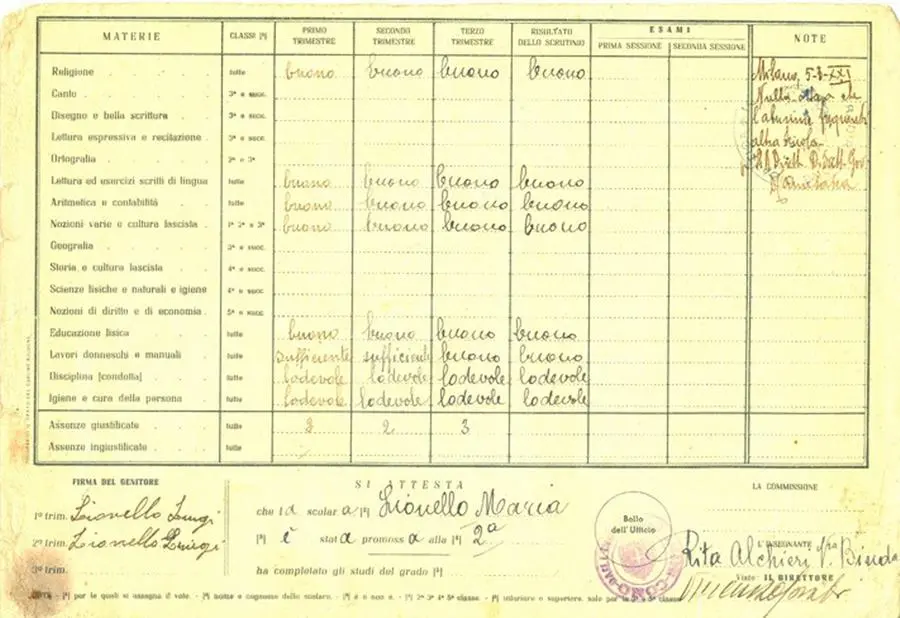 MATERIE CLASSI [¹] PRIMO TRIMESTRE SECONDO TRIMESTRE TERZO TRIMESTRE RISULTATO DELLO SCRUTINIO ESAMI PRIMA SESSIONE SECONDA SESSIONE NOTE
Religione tutte buono buono buono buono
Canto 3ª e succ.
Disegno e bella scrittura 3ª e succ.
Lettura espressiva e recitazione 3ª e succ.
Ortografia 2ª e 3ª
Lettura ed esercizi scritti di lingua tutte buono buono buono buono
Aritmetica e contabilità tutte buono buono buono buono
Nozioni varie e cultura fascista 1ª 2ª e 3ª buono buono buono buono
Geografia 3ª e succ.
Storia e cultura fascista 4ª e succ.
Scienze fisiche e naturali e igiene 4ª e succ.
Nozioni di diritto e di economia 5ª e succ.
Educazione fisica tutte buono buono buono buono
Lavori donneschi e manuali tutte sufficiente sufficiente buono buono
Disciplina [condotta] tutte lodevole lodevole lodevole lodevole
Igiene e cura della persona tutte lodevole lodevole lodevole lodevole
Assenze giustificate tutte 2 2 3
Assenze ingiustificate tutte
Milano, 5-8-XXI
Nulla che
l'alunna frequenti
altra scuola
FIRMA DEL GENITORE
1º trim. Lionello Luigi
2º trim. Lionello Luigi
3º trim.
SI ATTESTA
che la scolara [²] Lionello Maria
[³] è stata promossa alla [⁴] 2ª
ha completato gli studi del grado [⁵]
Bollo
dell'Ufficio
COMO
LA COMMISSIONE
L'INSEGNANTE
Rita Alchieri
Visto IL DIRETTORE
NOTE - [¹] per le quali si assegna il voto. - [²] nome e cognome dello scolaro. - [³] è o non è. - [⁴] 2ª 3ª 4ª 5ª classe - [⁵] inferiore o superiore, solo per la 3ª e 5ª classe